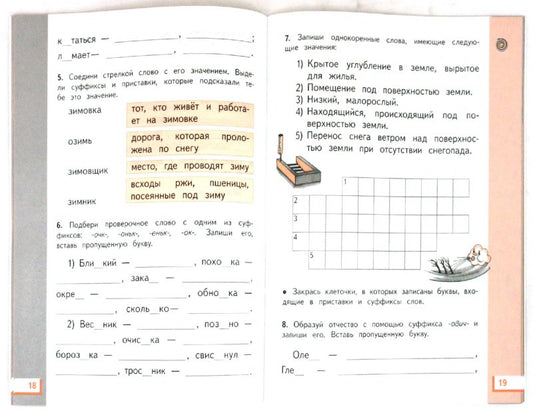 к__таться — ________, ________;
л__мает— ________, ________.
5. Соедини стрелкой слово с его значением. Выде-
ли суффиксы и приставки, которые подсказали те-
бе это значение.
зимовка
тот, кто живёт и работа-
ет на зимовке
озимь
дорога, которая проло-
жена по снегу
зимовщик
место, где проводят зиму
зимник
всходы ржи, пшеницы,
посеянные под зиму
6. Подбери проверочное слово с одним из суф-
фиксов: -очк-, -оньк-, -еньк-, -ок-. Запиши его,
вставь пропущенную букву.
1) Бли__кий — ________, похо__ка —
________, зака__ — ________,
окре__ — ________, обно__ка —
________, сколь__ко— ________.
2) Вес__ник — ________, поз__но —
________, очис__ка — ________,
бороз__ка — ________, свис__нул —
________, трос__ник — ________.
18
7. Запиши однокоренные слова, имеющие следую-
щие значения:
1) Крытое углубление в земле, вырытое
для жилья.
2) Помещение под поверхностью земли.
3) Низкий, малорослый.
4) Находящийся, происходящий под по-
верхностью земли.
5) Перенос снега ветром над поверхнос-
тью земли при отсутствии снегопада.
1
2
3
4
5
• Закрась клеточки, в которых записаны буквы, вхо-
дящие в приставки и суффиксы слов.
8. Образуй отчество с помощью суффикса -ович- и
запиши его. Вставь пропущенную букву.
Оле__ — ________,
Гле__ — ________.
19